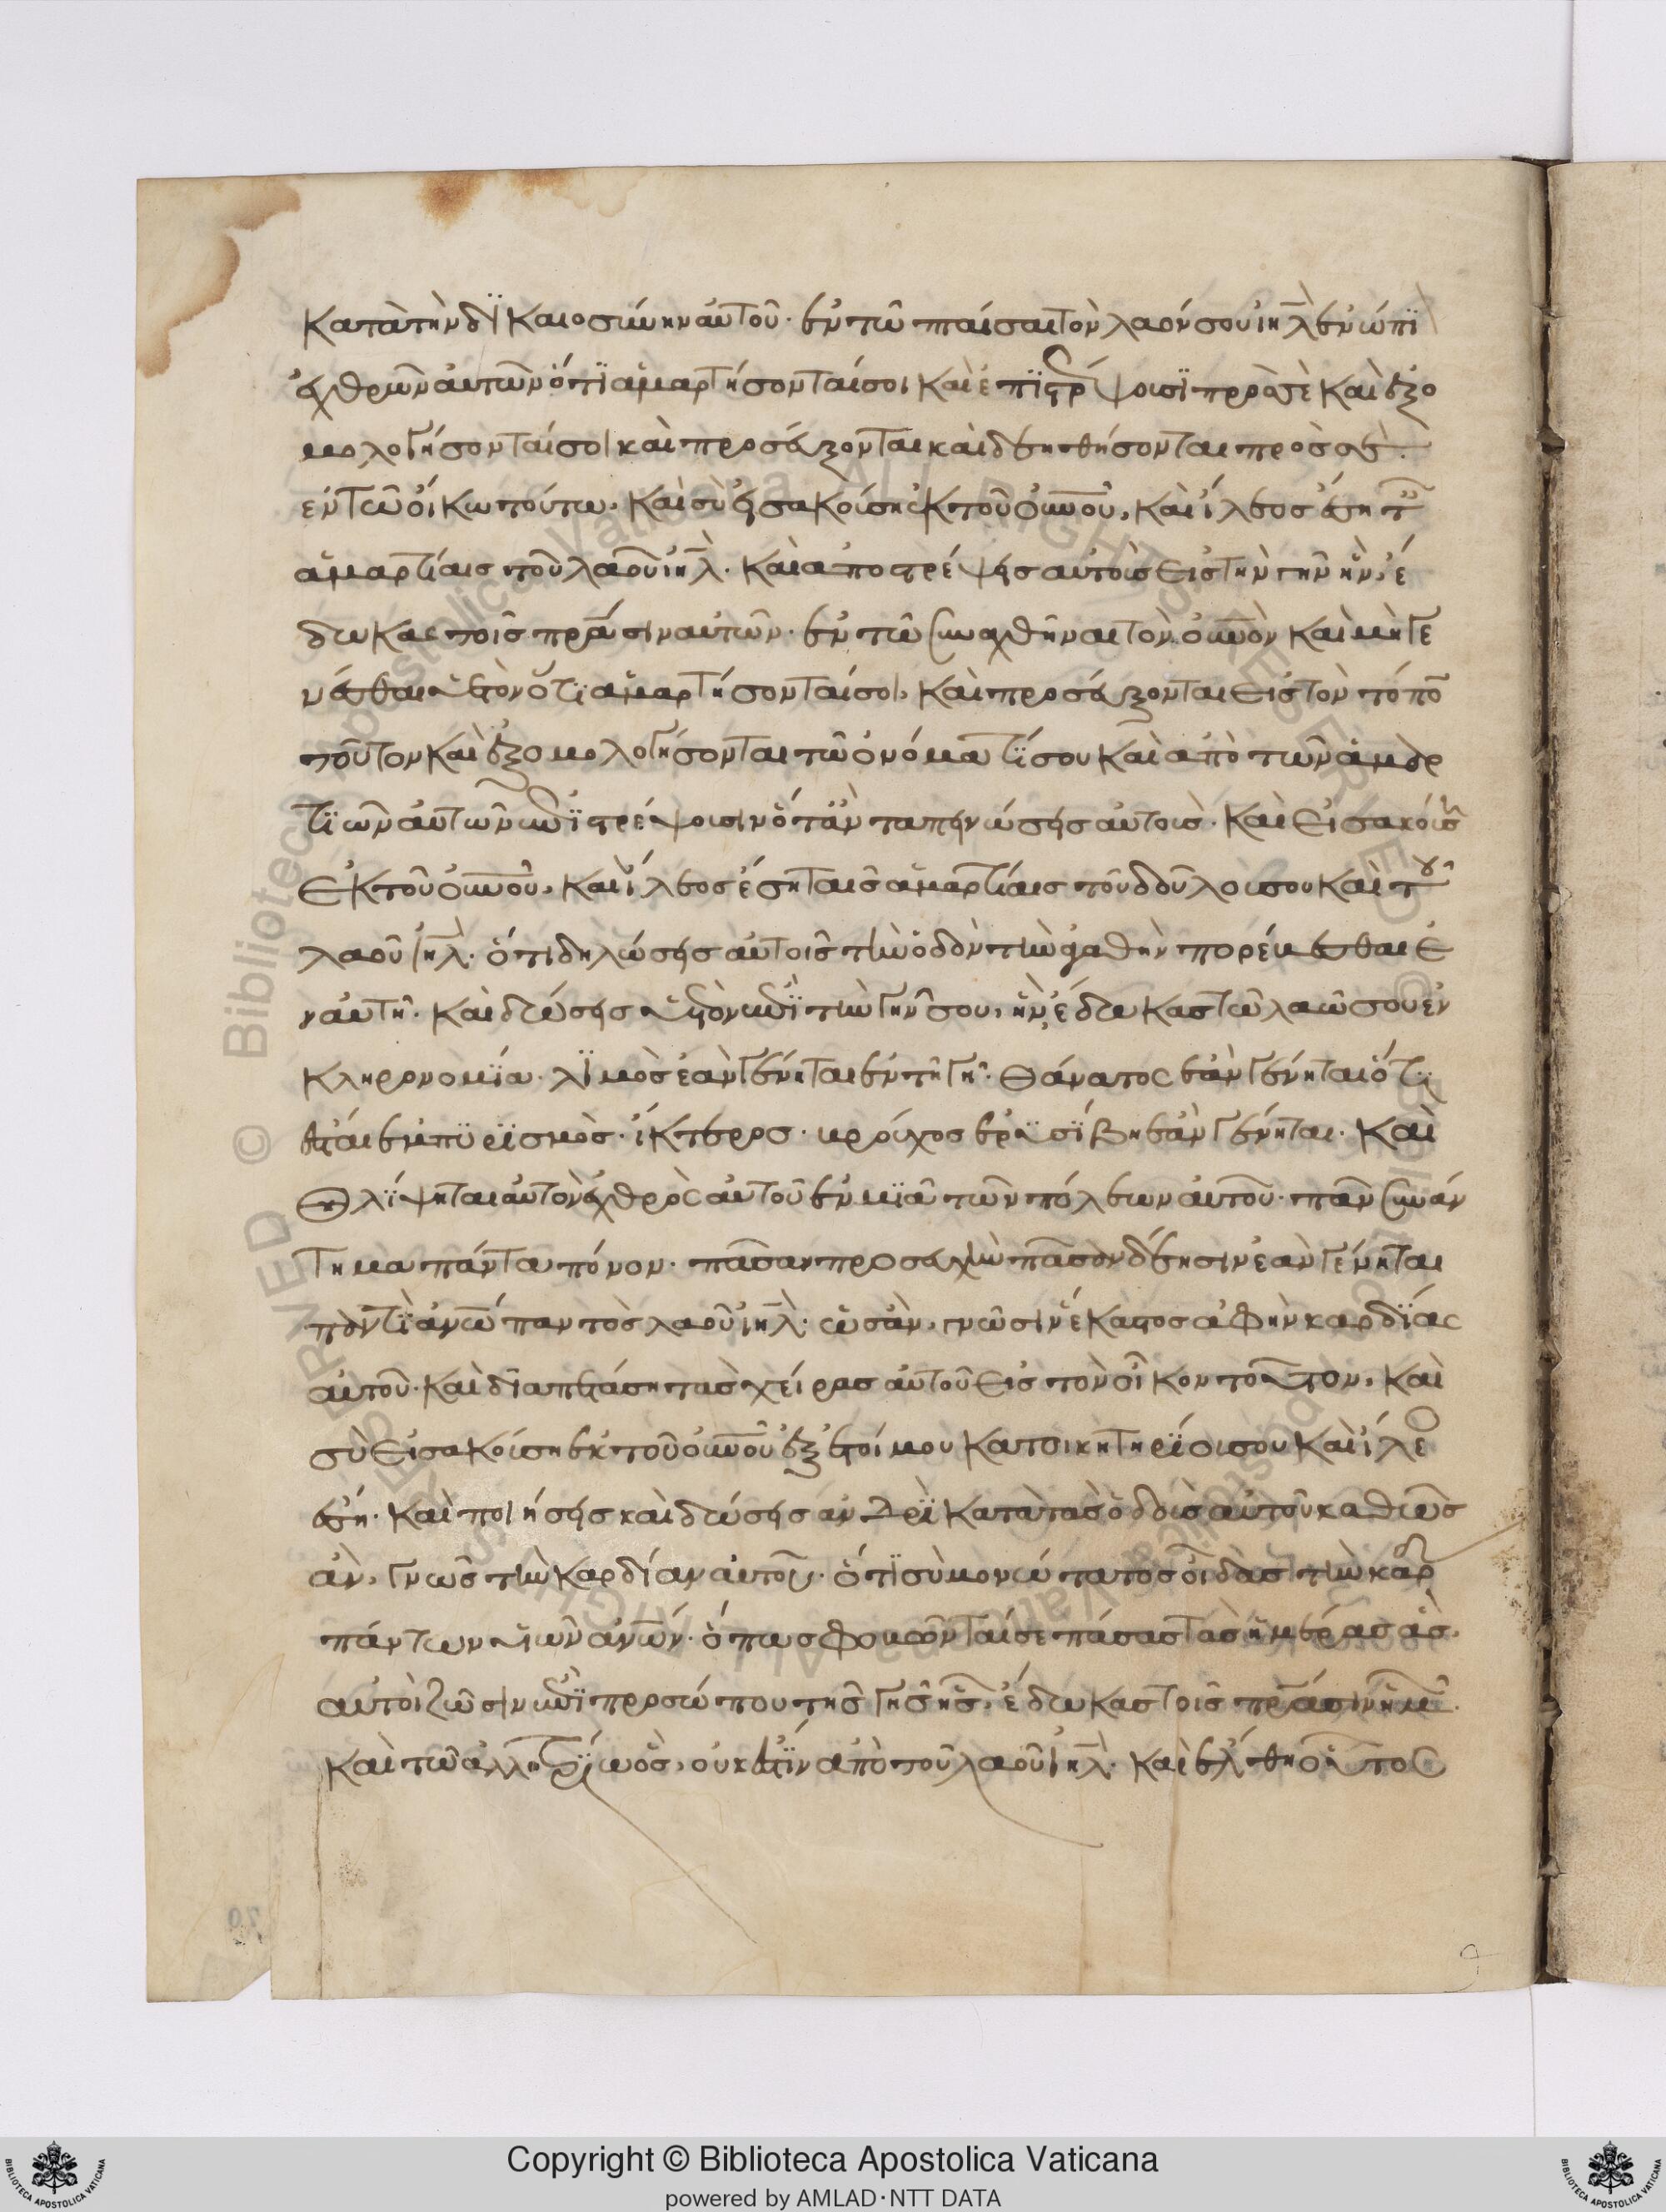 κατὰ τὴν δϊκαιοσύνην αὐτοῦ· ἐν τῶ πταίσαι τὸν λαόν σου ιηλ ἐνώπϊ
ἐχθρῶν αὐτῶν ὅτϊ ἁμαρτήσονταί σοι καὶ ἐπϊστρέψουσϊ πρὸς σὲ καὶ ἐξο
μολογήσονταί σοι καὶ προσεύξονται καὶ δεηθήσονται πρὸς σὲ.
ἐν τῶ οἴκω τούτω, καὶ σὺ εἰσακούσης ἐκ τοῦ οὐνοῦ, καὶ ἵλεος ἔση τ
ἁμαρτίαις τοῦ λαοῦ ιηλ. καὶ ἀποστρέψεις αὐτοὺς εἰς τὴν γῆν ἣν, ἔ
δωκας τοῖς πράσιν αὐτῶν· ἐν τῶ συσχεθῆναι τὸν οὐνὸν καὶ μὴ γε
νέσθαι ὑετὸν ὅτϊ ἁμαρτήσονταί σοι, καὶ προσεύξονται εἰς τὸν τόπο
τοῦτον καὶ ἐξομολογήσονται τῶ ὀνόματϊ σου καὶ ἀπὸ τῶν ἁμαρ
τϊῶν αὐτῶν ἐπϊστρέψουσιν ὅτἂν ταπεινώσεις αὐτοὺς. καὶ εἰσακούσ
ἐκ τοῦ οὐνοῦ, καὶ ἵλεος ἔση ταῖς ἁμαρτίαις τοῦ δούλου σου καὶ τοῦ
λαοῦ ιηλ. ὅτι δηλώσεις αὐτοῖς τὴν ὁδὸν τὴν ἀγαθὴν πορεύεσθαι ἐ
ν αὐτῆ. καὶ δώσεις ὑετὸν ἐπϊ τὴν γῆν σου, ἣν, ἔδωκας τῶ λαῶ σου ἐν
κληρονομϊα. λϊμὸς ἐὰν γένηται ἐν τῆ γῆ. θάνατος ἐὰν γένηται ὅτι
ἔσται ἐμπυρϊσμὸς. ἴκτερος. βροῦχος ἐρυσϊβη ἐὰν γένηται. καὶ
θλϊψηται αὐτὸν ἐχθρὸς αὐτοῦ ἐν μϊᾶ τῶν πόλεων αὐτοῦ. πᾶν συνάν
τημα πάντα πόνον. πᾶσαν προσευχὴν πᾶσαν δέησιν ἐὰν γένηται
παντϊ ἀνω παντὸς λαοῦ ιηλ. ὡς ἂν, γνῶσιν ἕκαστος ἁφὴν καρδϊας
αὐτοῦ. καὶ διαπετάση τὰς χεῖρας αὐτοῦ εἰς τὸν οἶκον τοῦτον, καὶ
σὺ εἰσακούση ἐκ τοῦ οὐνοῦ ἐξ ἑτοίμου κατοικητηρϊου σου καὶ ἵλεο
ἔση. καὶ ποιήσεις καὶ δώσεις ανδρϊ κατὰ τὰς ὁδοὺς αὐτοῦ καθὼς
ἂν, γνῶς τὴν καρδίαν αὐτοῦ. ὅτϊ σὺ μονώτατος οἶδας τὴν καρ
πάντων υἱῶν ἀνων. ὅπως φοβῶνταί σε πάσας τὰς ἡμέρας ἃς,
αὐτοὶ ζῶσιν ἐπϊ προσώπου τῆς γῆς ἧς, ἔδωκας τοῖς πράσιν ἡμ.
καὶ τῶ ἀλλοτρϊω ὃς, οὐκ ἔστϊν ἀπὸ τοῦ λαοῦ ιηλ. καὶ ἔλθη οὗτος